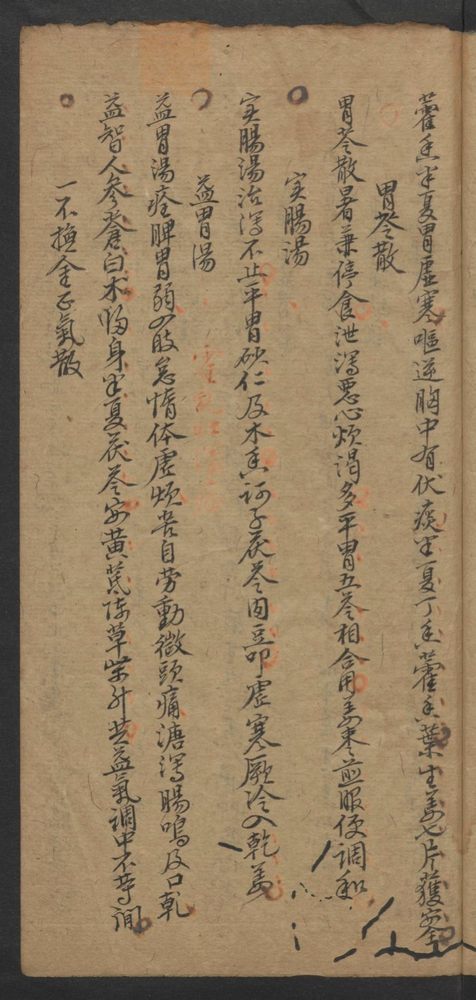 藿香半夏胃虛寒嘔逆胸中有伏痰半夏丁香藿香葉生姜七片獲安全
胃苓散
胃苓散暑兼停食泄瀉惡心煩渴多平胃五苓相合用姜棗煎服便調和
实腸湯
实腸湯治瀉不止平胃砂仁及木香訶子茯苓肉豆叩虛寒厥冷入乾姜
益胃湯
益胃湯痊脾胃弱四肢怠惰体虛煩苦自劳動微頭痛溏瀉腸鳴及口乾
益智人參蒼白术歸身半夏茯苓安黄芪陈草柴升共益氣調中不等閒
一不換金正氣散